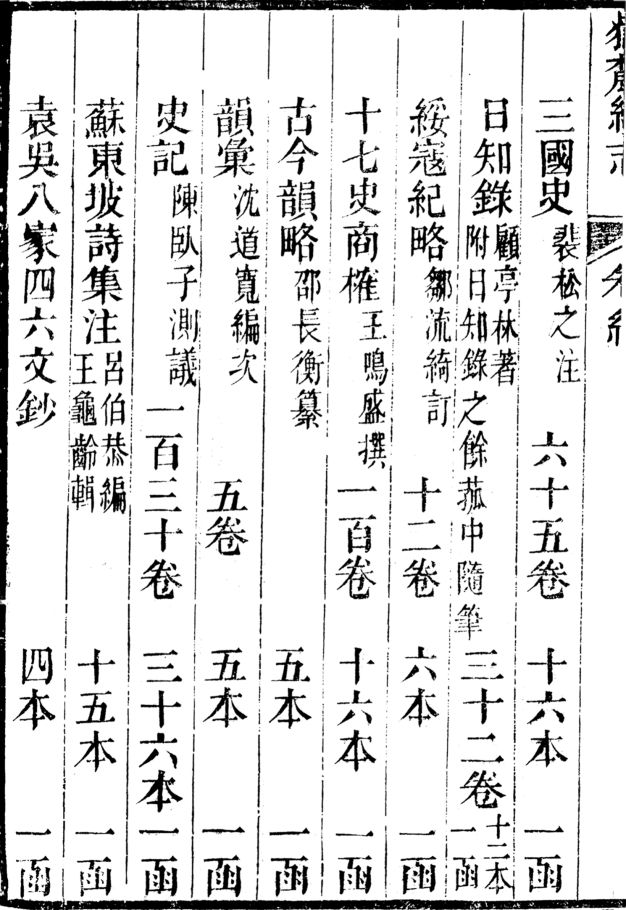 三國史裴松之注 六十五卷 十六本 一函
日知錄顧亭林著附日知錄之餘菰中隨筆 三十二卷十二本一函
綏寇紀略鄒流綺訂 十二卷 六本 一函
十七史商榷王鳴盛撰 一百卷 十六本 一函
古今韻略邵長衡纂 五本 一函
韻彙沈道寬編次 五卷 五本 一函
史記陳臥子測議 一百三十卷 三十六本 一函
蘇東坡詩集注呂伯恭編王龜齡輯 十五本 一函
袁吳八家四六文鈔 四本 一函